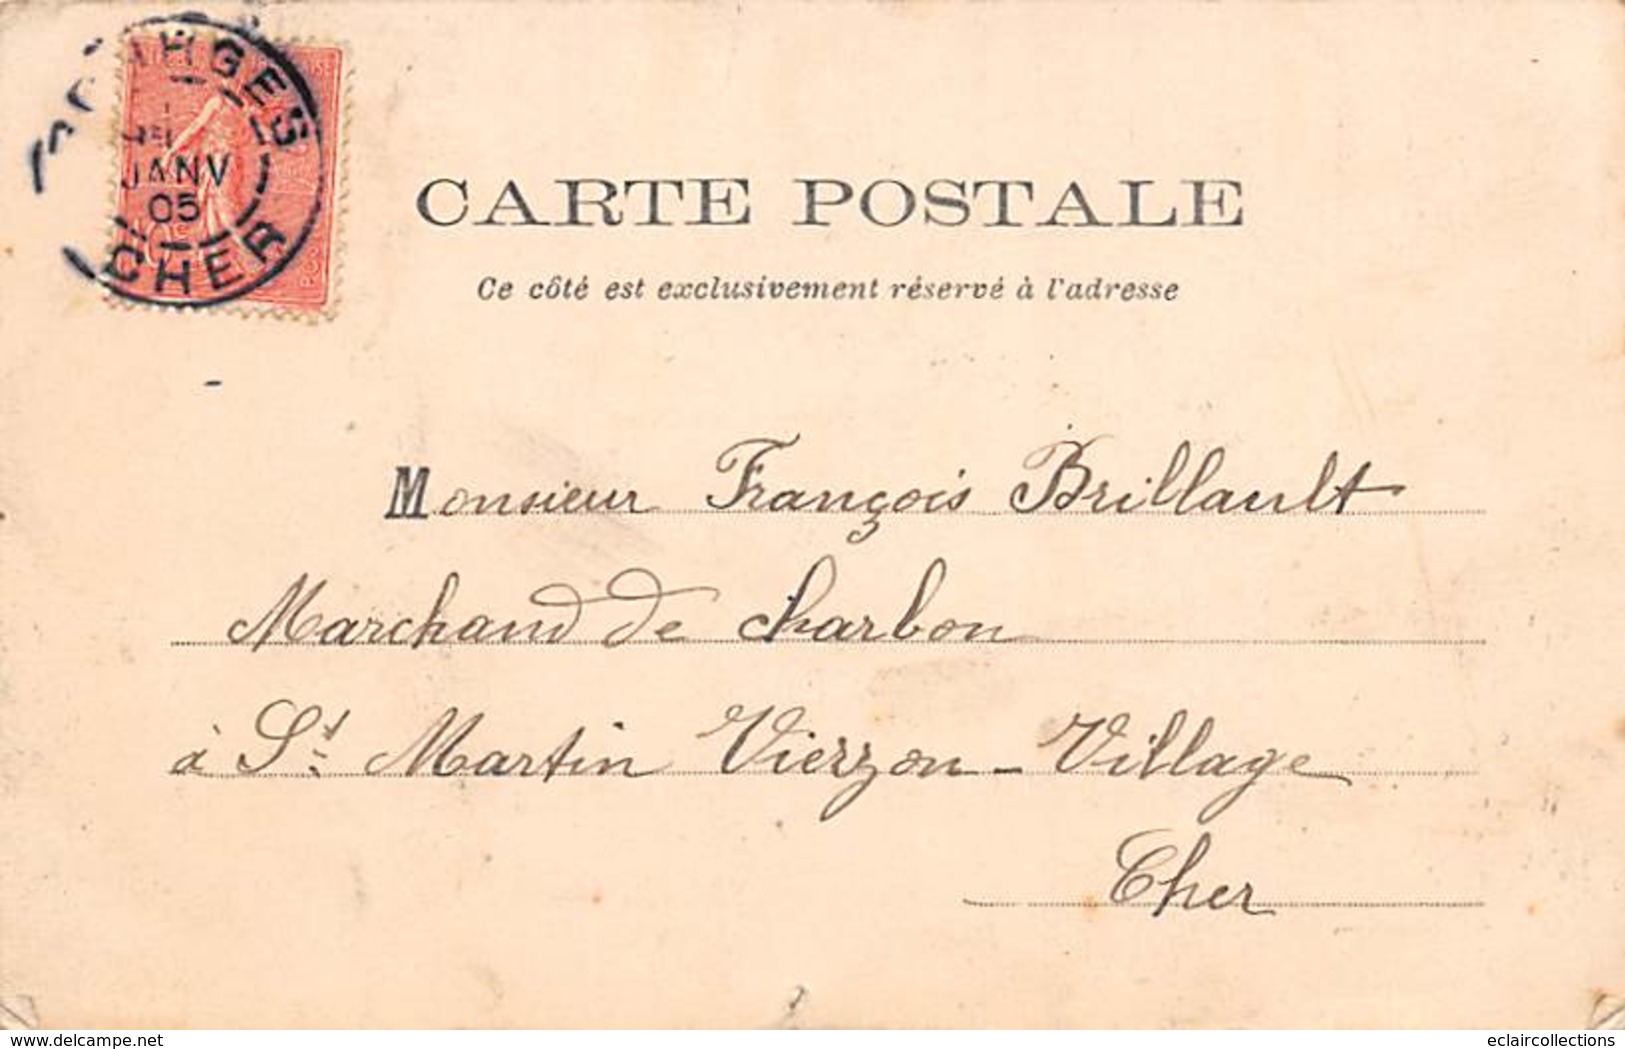 JANV
05
CHER
CARTE POSTALE
Ce côté est exclusivement réservé à l'adresse
Monsieur François Brillault
Marchand de charbon
à St Martin Vierzon-Village
Cher
www.delcampe.net
eclaircollections